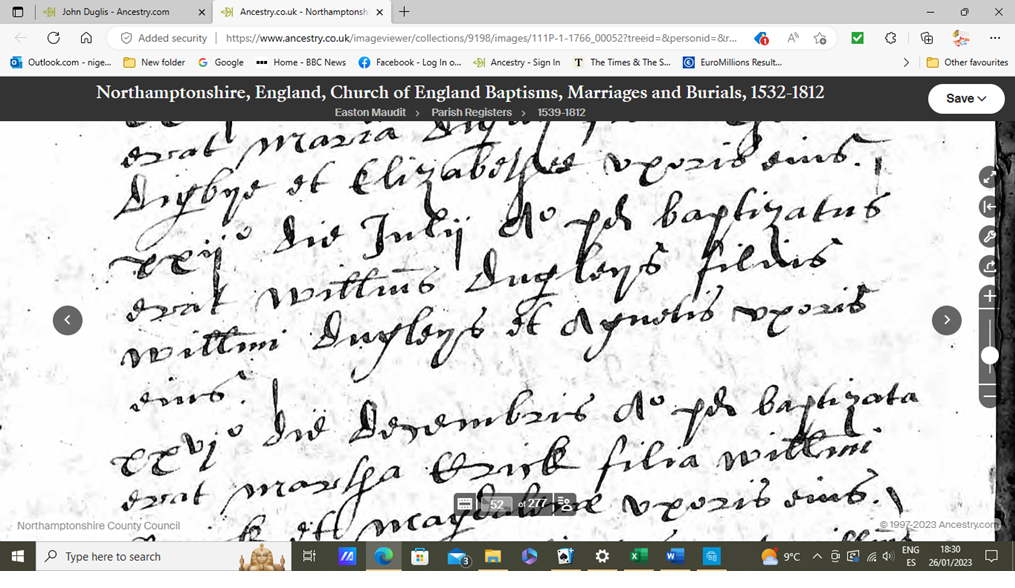 John Duglis - Ancestry.com
Ancestry.co.uk - Northamptonsh
Added security
https://www.ancestry.co.uk/imageviewer/collections/9198/images/111P-1-1766_00052?treeid=&personid=&r...
Outlook.com - nige...
New folder
Google
Home - BBC News
Facebook - Log In o...
Ancestry - Sign In
The Times & The S...
EuroMillions Result...
Other favourites
Northamptonshire, England, Church of England Baptisms, Marriages and Burials, 1532-1812
Easton Maudit > Parish Registers > 1539-1812
Save
erat Maria
Digbye et Elizabethe uxoris eius.
xxijº die Julij Aº pd baptizatus
erat Willms Dugleys filius
Willmi Dugleys et Agnetis uxoris
eius.
xxvjº die Decembris Aº pd baptizata
erat Martha filia Willmi
et Magdalene uxoris eius.
52 of 277
Northamptonshire County Council
© 1997-2023 Ancestry.com
Type here to search
3
9°C
ENG
ES
18:30
26/01/2023